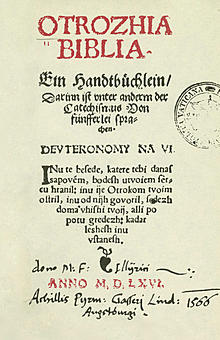 OTROZHIA
BIBLIA.
Ein Handtbüchlein/
Darinn ist vnter anderm der
Catechismus Von
fünfferlei spra-
chen.
DEVTERONOMY NA VI.
INu te besede, katere tebi danas
sapovém, bodesh utvoiem ser-
cu hranil: inu ije Otrokom tvoim
ostril, inu od nijh govoril, sedezh
doma vhishi tvoij, alli po
potu gredezh: kadar
leshesh inu
vstanesh.
dono M. F. Illyrici
ANNO M. D. LXVI.
Achillis Pyrm: Gasseri Lind: 1566
Augstburgi
VATICANA